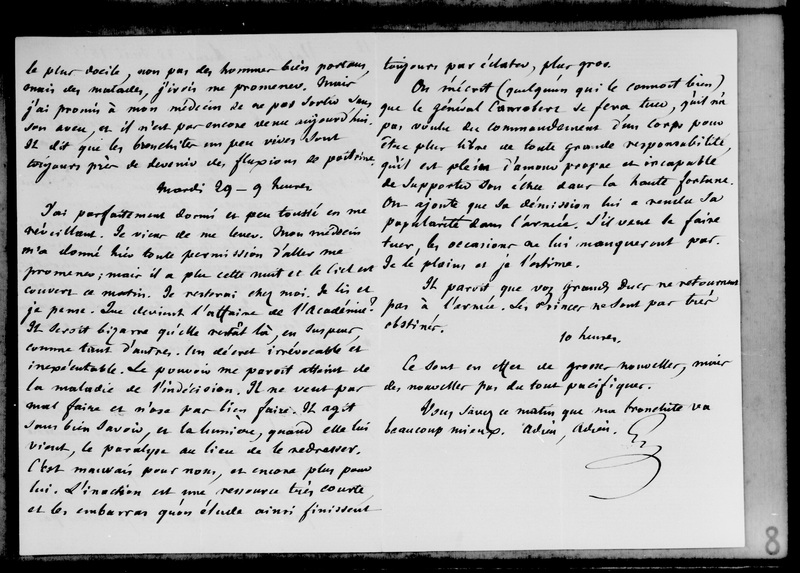 le plus docile, non pas des hommes bien portans,
mais des malades, j'irois me promener. Mais
j'ai promis à mon médecin de ne pas sortir sans
son aveu, et il n'est pas encore venu aujourd'hui.
Il dit que les bronchites un peu vives sont
toujours près de devenir des fluxions de poitrine.
Mardi 29 - 9 heures
J'ai parfaitement dormi et peu toussé en me
réveillant. Je viens de me lever. Mon médecin
m'a donné hier toute permission d'aller me
promener ; mais il a plu cette nuit et le ciel est
couvert ce matin. Je resterai chez moi. Je lis et
je pense. Que devient l'affaire de l'Académie ?
Il seroit bizarre qu'elle restât là, en suspens,
comme tant d'autres. Un décret irrévocable et
inexécutable. Le pouvoir me paroit atteint de
la maladie de l'indécision. Il ne veut pas
mal faire et n'ose pas bien faire. Il agit
sans bien savoir, et la lumière, quand elle lui
vient, le paralyse au lieu de le redresser.
C'est mauvais pour nous, et encore plus pour
lui. L'inaction est une ressource très courte,
et les embarras qu'on élude ainsi finissent
toujours par éclater, plus gros.
On m'écrit (quelqu'un qui le connoit bien)
que le général Canrobert se fera tuer, qu'il n'a
pas voulu du commandement d'un corps pour
être plus libre de toute grande responsabilité,
qu'il est plein d'amour propre et incapable
de supporter son échec dans la haute fortune.
On ajoute que sa démission lui a rendu sa
popularité dans l'armée. S'il veut se faire
tuer, les occasions ne lui manqueront pas.
Je le plains et je l'estime.
Il paroit que vos grands Ducs ne retournent
pas à l'armée. Les Princes ne sont pas très
obstinés.
10 heures.
Ce sont en effet de grosses nouvelles, mais
des nouvelles pas du tout pacifiques.
Vous savez ce matin que ma bronchite va
beaucoup mieux. Adieu, Adieu.
8